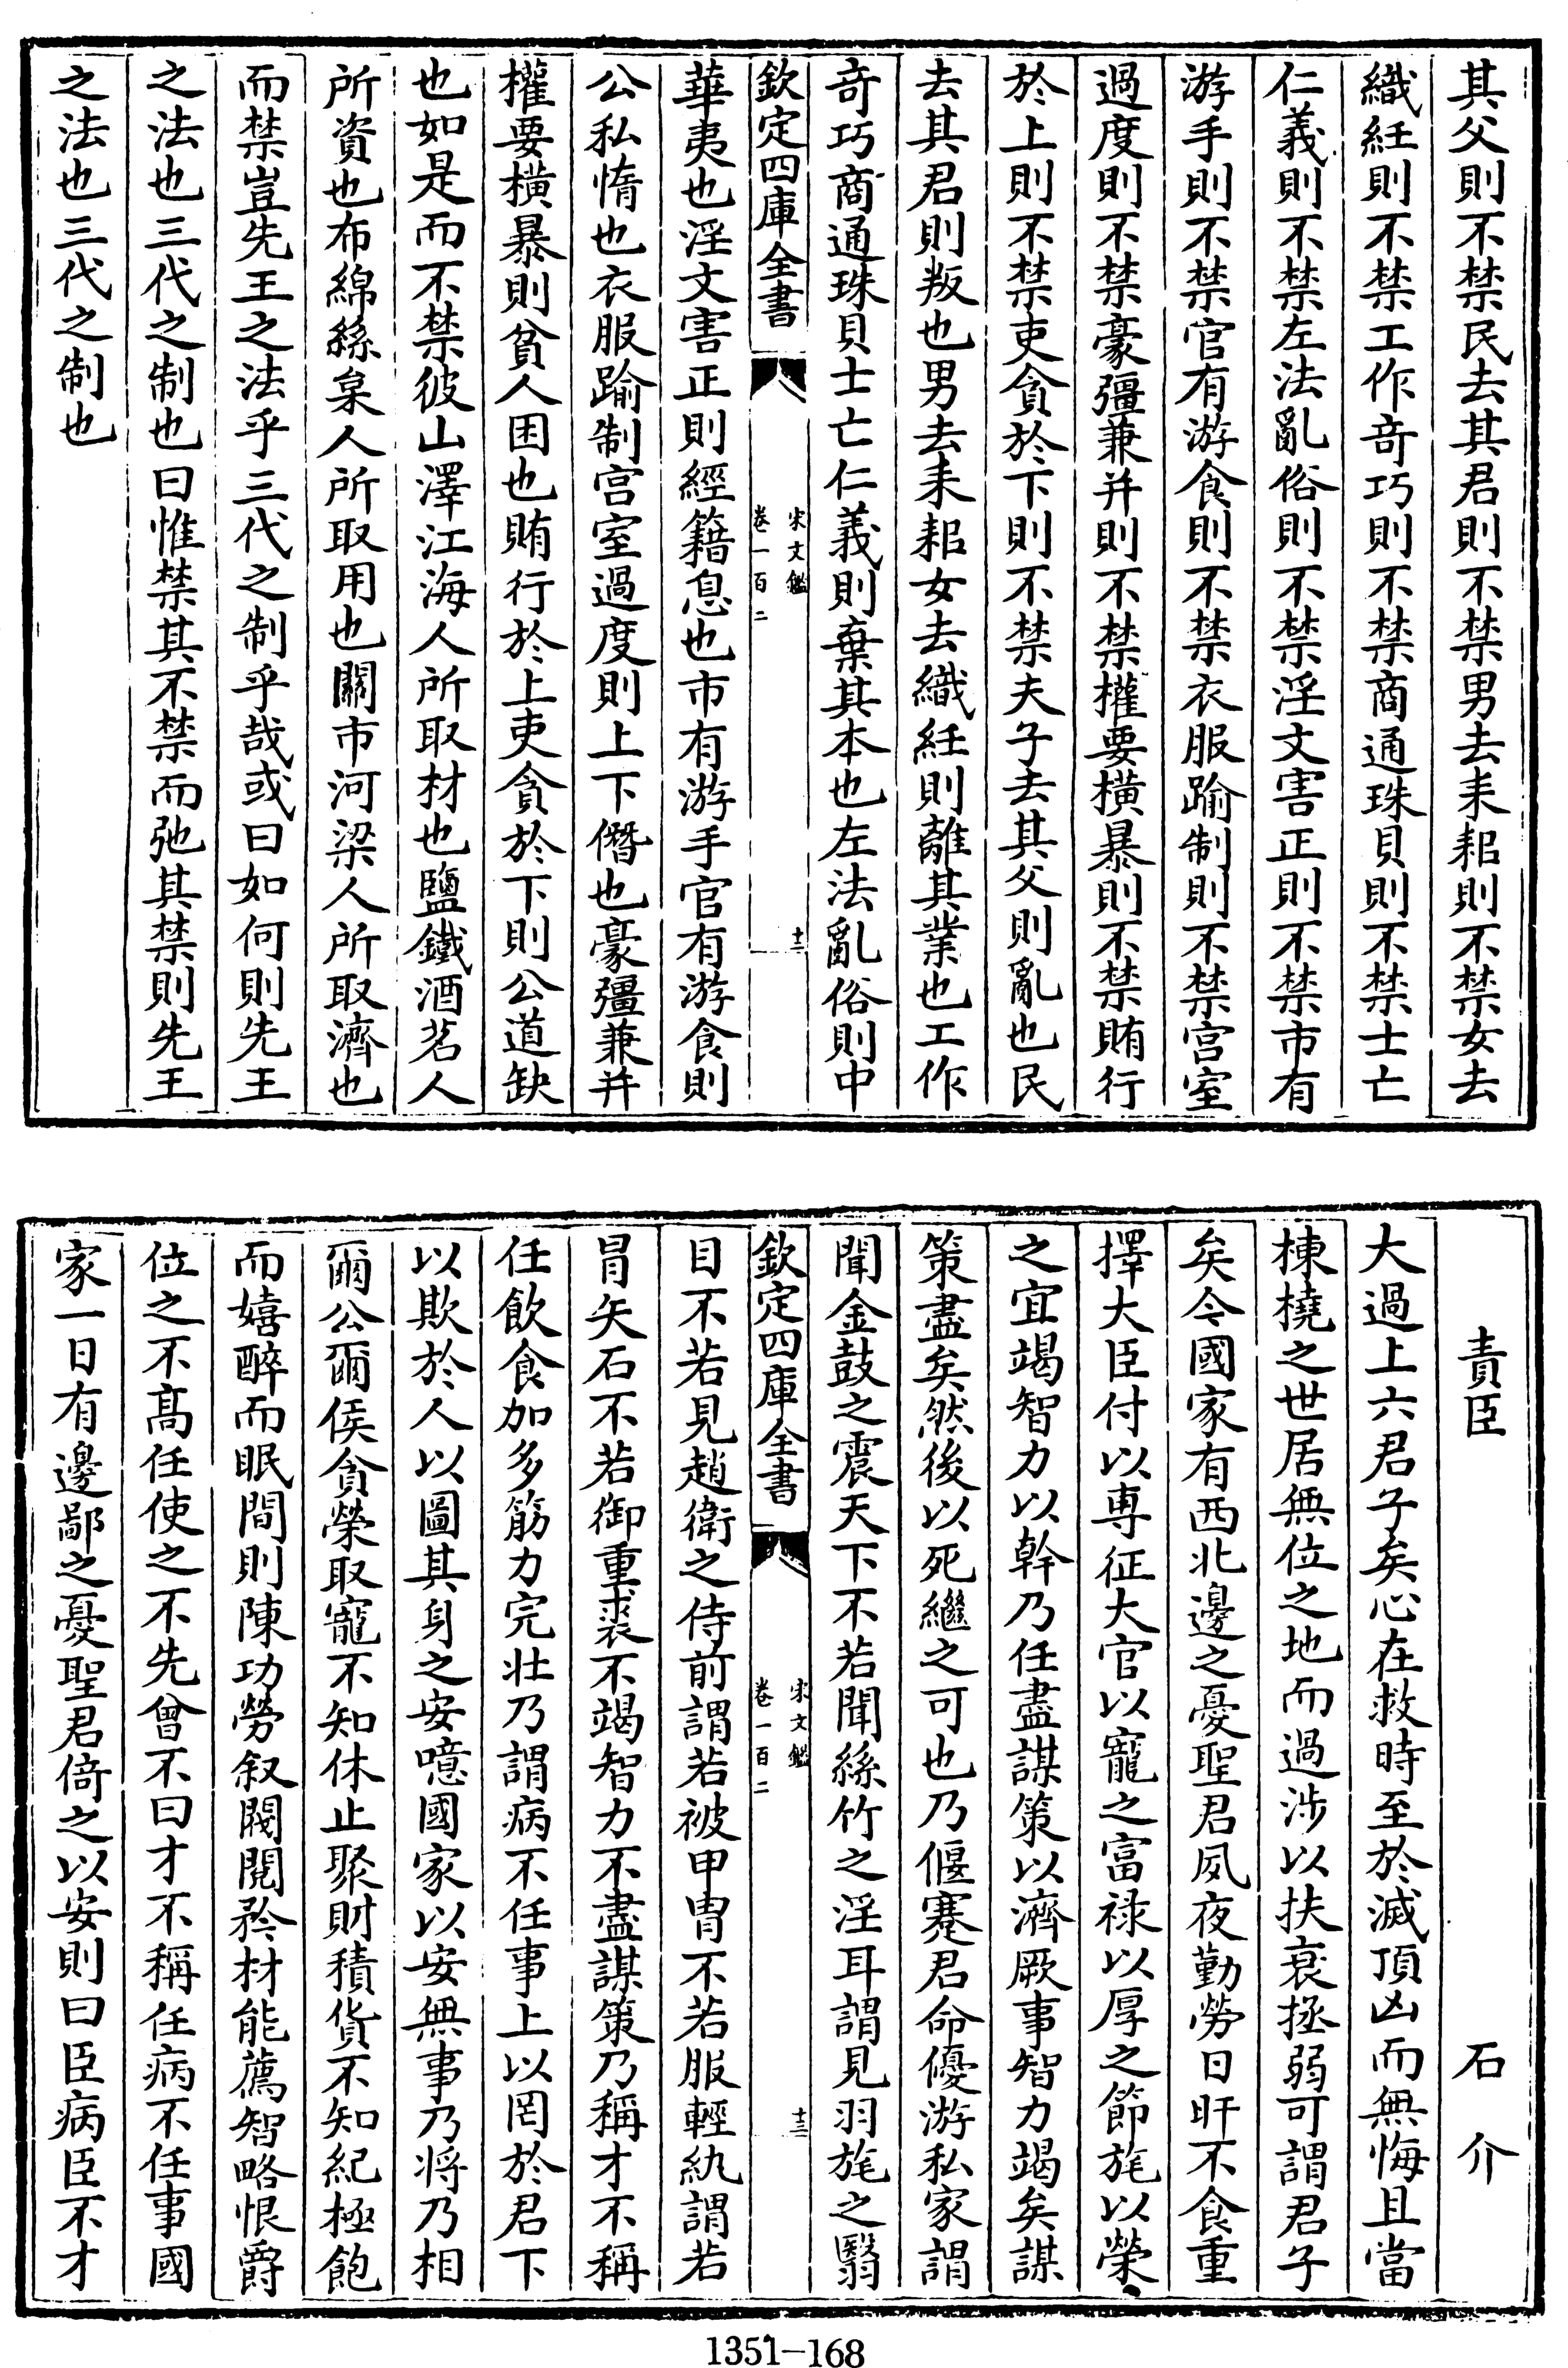 其父則不禁民去其君則不禁男去耒耜則不禁女去
織絍則不禁工作竒巧則不禁商通珠貝則不禁士亡
仁義則不禁左法亂俗則不禁淫文害正則不禁市有
游手則不禁官有游食則不禁衣服踰制則不禁宫室
過度則不禁豪彊兼并則不禁權要横暴則不禁賄行
於上則不禁吏貪於下則不禁夫子去其父則亂也民
去其君則叛也男去耒耜女去織絍則離其業也工作
竒巧商通珠貝士亡仁義則棄其本也左法亂俗則中
欽定四庫全書
宋文鑑
卷一百二
十二
華夷也淫文害正則經籍息也市有游手官有游食則
公私惰也衣服踰制宫室過度則上下僭也豪彊兼并
權要横暴則貧人困也賄行於上吏貪於下則公道缺
也如是而不禁彼山澤江海人所取材也鹽鐵酒茗人
所資也布綿絲枲人所取用也關市河梁人所取濟也
而禁豈先王之法乎三代之制乎哉或曰如何則先王
之法也三代之制也曰惟禁其不禁而弛其禁則先王
之法也三代之制也
責臣
石介
大過上六君子矣心在救時至於滅頂凶而無悔且當
棟橈之世居無位之地而過涉以扶衰拯弱可謂君子
矣今國家有西北邊之憂聖君夙夜勤勞日旰不食重
擇大臣付以專征大官以寵之富禄以厚之節旄以榮
之宜竭智力以幹乃任盡謀策以濟厥事智力竭矣謀
策盡矣然後以死繼之可也乃偃蹇君命優游私家謂
聞金鼓之震天下不若聞絲竹之淫耳謂見羽旄之翳
欽定四庫全書
宋文鑑
卷一百二
十三
目不若見趙衛之侍前謂若被甲胄不若服輕紈謂若
冒矢石不若御重裘不竭智力不盡謀策乃稱才不稱
任飲食加多筋力完壯乃謂病不任事上以罔於君下
以欺於人以圖其身之安噫國家以安無事乃将乃相
爾公爾侯貪榮取寵不知休止聚財積貨不知紀極飽
而嬉醉而眠間則陳功勞叙閥閱矜材能薦智略恨爵
位之不髙任使之不先曾不曰才不稱任病不任事國
家一日有邊鄙之憂聖君倚之以安則曰臣病臣不才
1351-168